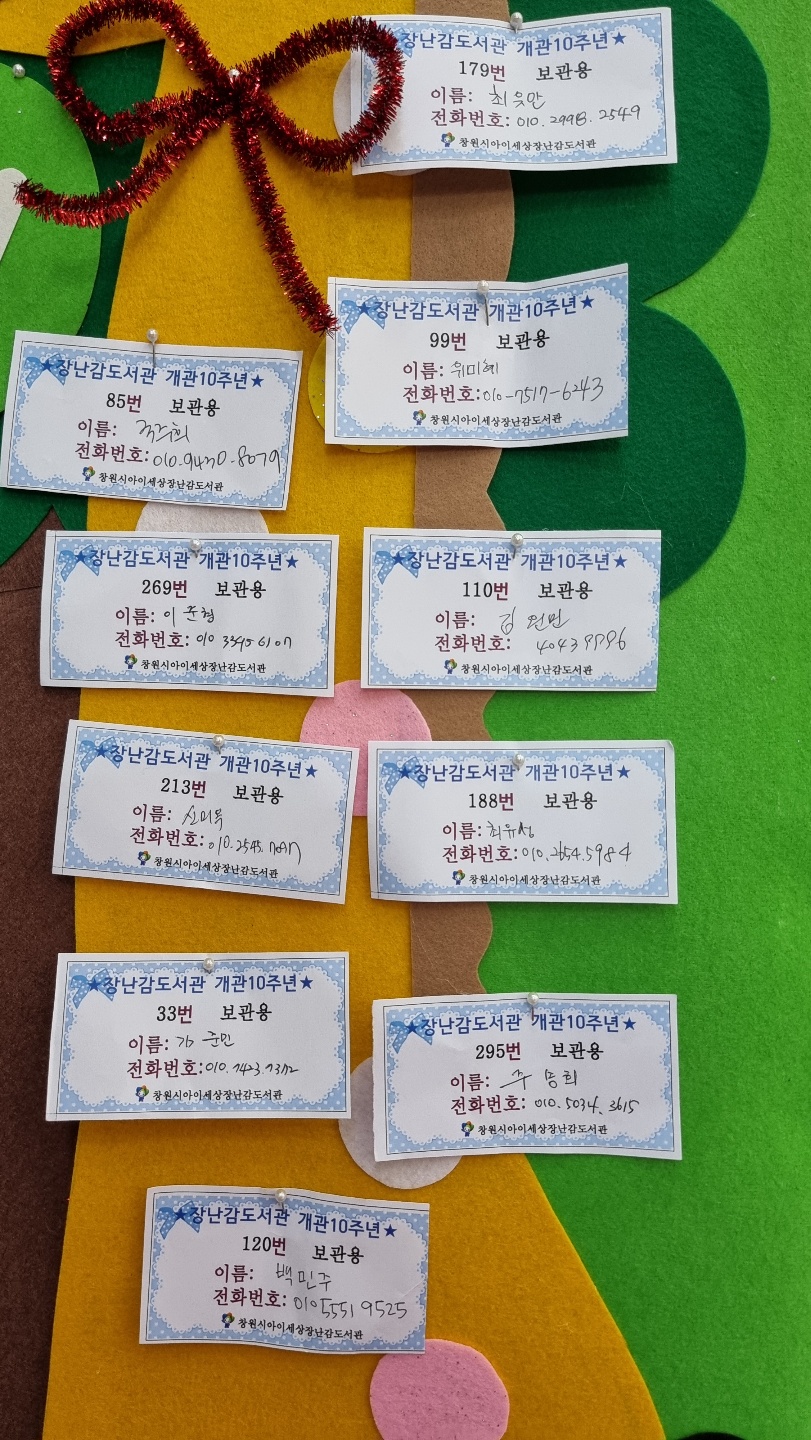 ★장난감도서관 개관10주년★
179번 보관용
이름:
전화번호: 010.2998.2549
창원시아이세상장난감도서관
★장난감도서관 개관10주년★
99번 보관용
이름: 위미혜
전화번호: 010-7517-6243
창원시아이세상장난감도서관
★장난감도서관 개관10주년★
85번 보관용
이름:
전화번호: 010.9430.8079
창원시아이세상장난감도서관
★장난감도서관 개관10주년★
269번 보관용
이름: 이
전화번호: 010
창원시아이세상장난감도서관
★장난감도서관 개관10주년★
110번 보관용
이름: 김
전화번호:
창원시아이세상장난감도서관
★장난감도서관 개관10주년★
213번 보관용
이름: 신미옥
전화번호: 010.2545.
창원시아이세상장난감도서관
★장난감도서관 개관10주년★
188번 보관용
이름: 최유성
전화번호: 010.2654.5984
창원시아이세상장난감도서관
★장난감도서관 개관10주년★
33번 보관용
이름: 준민
전화번호: 010.7423.
창원시아이세상장난감도서관
★장난감도서관 개관10주년★
295번 보관용
이름: 주 명희
전화번호: 010.5034.3615
창원시아이세상장난감도서관
★장난감도서관 개관10주년★
120번 보관용
이름: 백민주
전화번호: 010 5551 9525
창원시아이세상장난감도서관